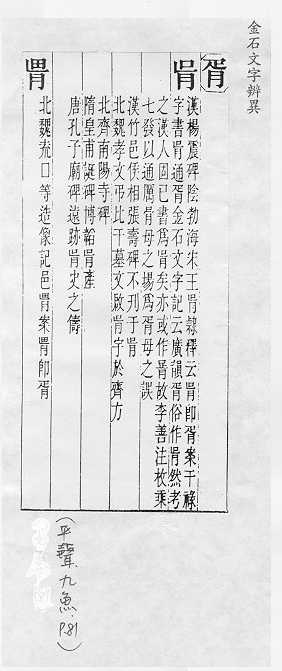 金石文字辨異
胥
𦙃 漢楊震碑陰勃海朱王𦙃隸釋云𦙃即胥案干祿
字書𦙃通胥金石文字記云廣韻胥俗作𦙃然考
之漢人固已書爲𦙃矣亦或作𦙃故李善注枚乘
七發以通厲𦙃母之場爲胥母之誤
漢竹邑侯相張壽碑不刋于𦙃
北魏孝文弔比干墓文啟𦙃宇於齊方
北齊南陽寺碑
隋皇甫誕碑博韜𦙃產
唐孔子廟碑遠跡𦙃史之儔
北魏㐬口等造像記邑𦝠案𦝠即胥
(平聲.九魚.P.81)